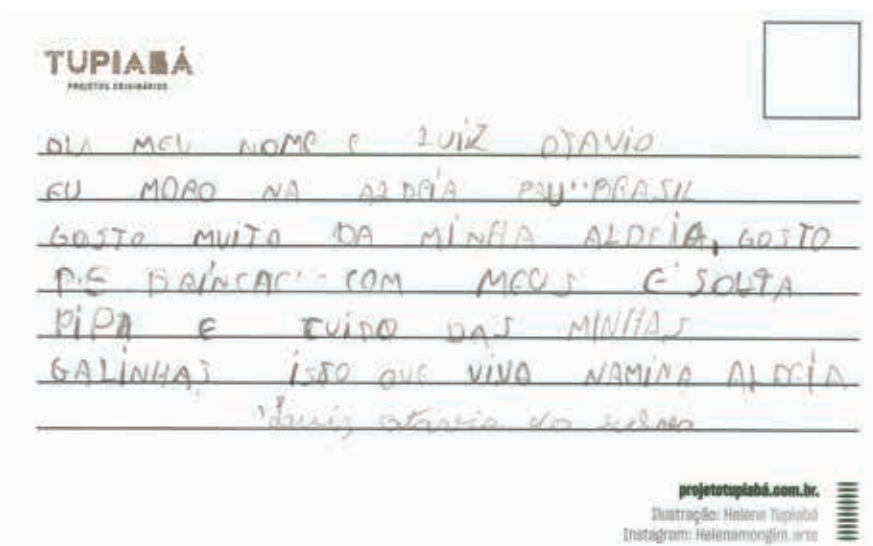 TUPIABÁ
PROJETOS ORIGINÁRIOS
OLA MEU NOME E LUIZ OTAViO
EU MORO NA ALDEiA PAU BRASIL
GOSTO MUiTO DA MiNHA ALDEiA, GOSTO
DE BRiNCAR COM MEUS E SOLTA
PiPA E CUiDO DAS MiNHAS
GALiNHAS iSSO QUE ViVO NAMiNA ALDEiA
Luiz otavio do
projetotupiabá.com.br.
Ilustração: Helena Tupiabá
Instagram: Helenamongim.arte